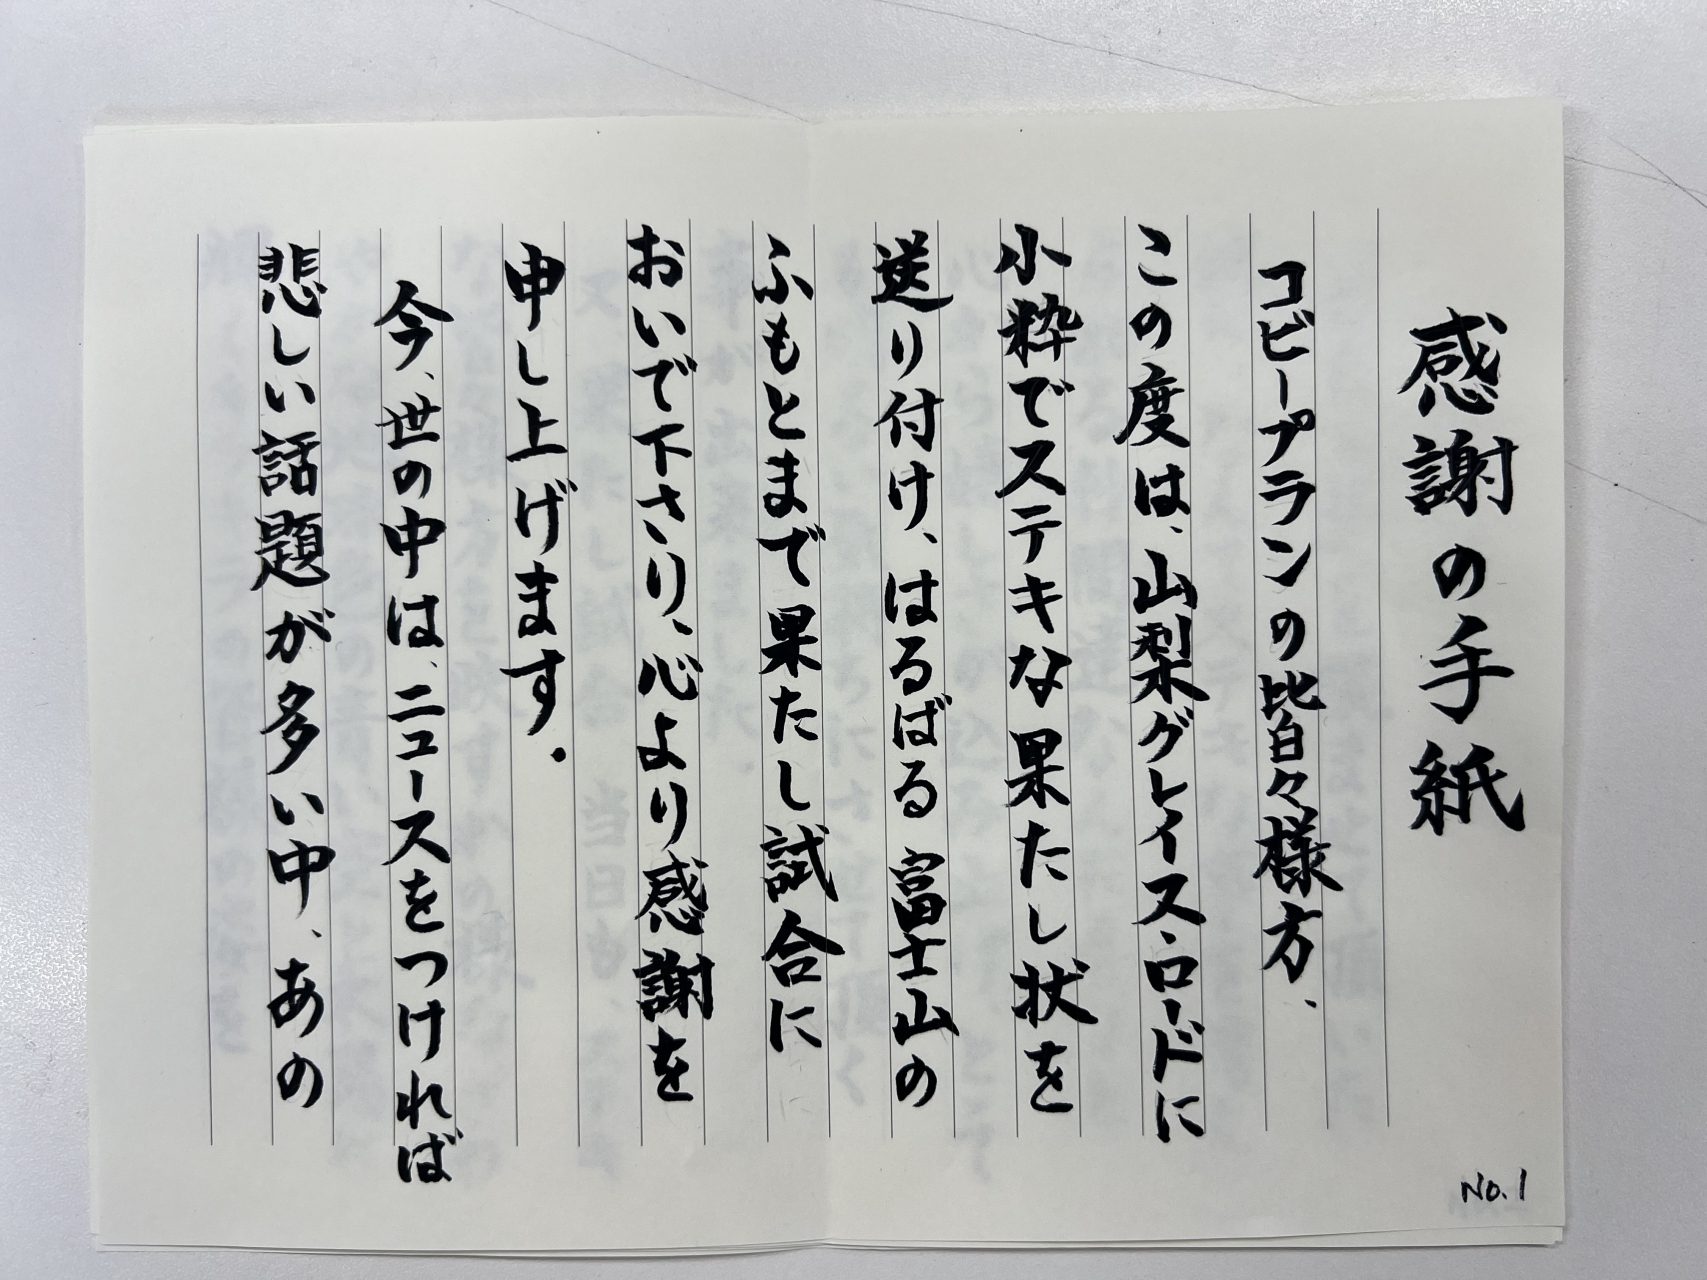 感謝の手紙
コビープランの皆々様方、
この度は、山梨グレイス・ロードに
小粋でステキな果たし状を
送り付け、はるばる富士山の
ふもとまで果たし試合に
おいで下さり、心より感謝を
申し上げます.
今、世の中は、ニュースをつければ
悲しい話題が多い中、あの
No.1